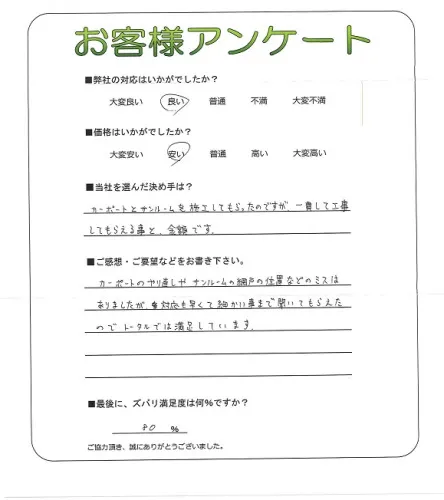 お客様アンケート
■弊社の対応はいかがでしたか？
大変良い 良い 普通 不満 大変不満
■価格はいかがでしたか？
大変安い 安い 普通 高い 大変高い
■当社を選んだ決め手は？
カーポートとサンルームを施工してもらったのですが、一貫して工事
してもらえる事と、金額です。
■ご感想・ご要望などをお書き下さい。
カーポートのやり直しやサンルームの網戸の位置などのミスは
ありましたが、対応も早くて細かい事まで聞いてもらえた
のでトータルでは満足しています。
■最後に、ズバリ満足度は何％ですか？
80 ％
ご協力頂き、誠にありがとうございました。